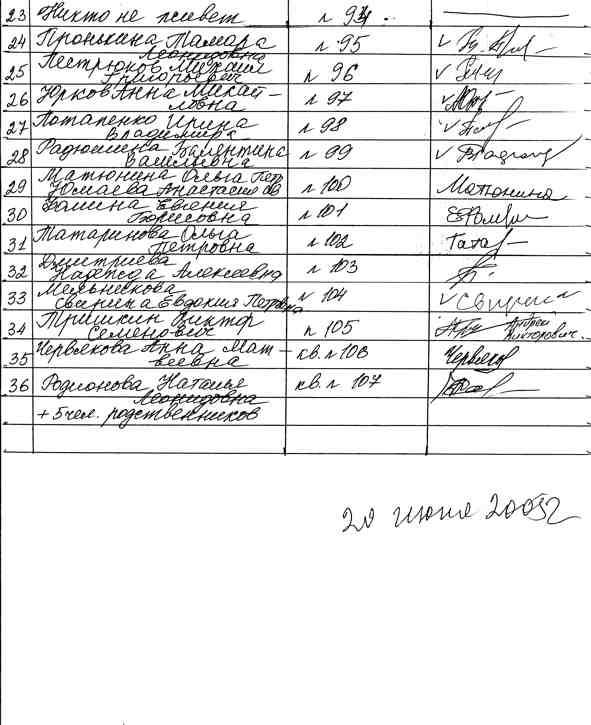 23 Никто не живет л 94.
24 Пронькина Тамара
Леонидовна л 95
25 Пестрюков Михаил
Григорьевич л 96
26 Юрков Анна Михай-
ловна л 97
27 Потапенко Ирина
Владимира л 98
28 Радюшина Валентина
Васильевна л 99
29 Матюнина Ольга Пет
Юмаева Анастасия л 100 Матюнина
30 Евгения
Борисовна л 101
31 Татаринова Ольга
Петровна л 102 Татар
32 Дмитриева
Надежда Алексеевна л 103
33
Свирина Евдокия Петровна л 104 Свирина
34 Тришкин Виктор
Семенович л 105 Андрей
Викторович.
35 Червякова Анна Мат-
веевна кв. л 106 Червяков
36 Родионова Наталья
Леонидовна кв. л 107
+ 5 чел. родственников
20 июня 2005г